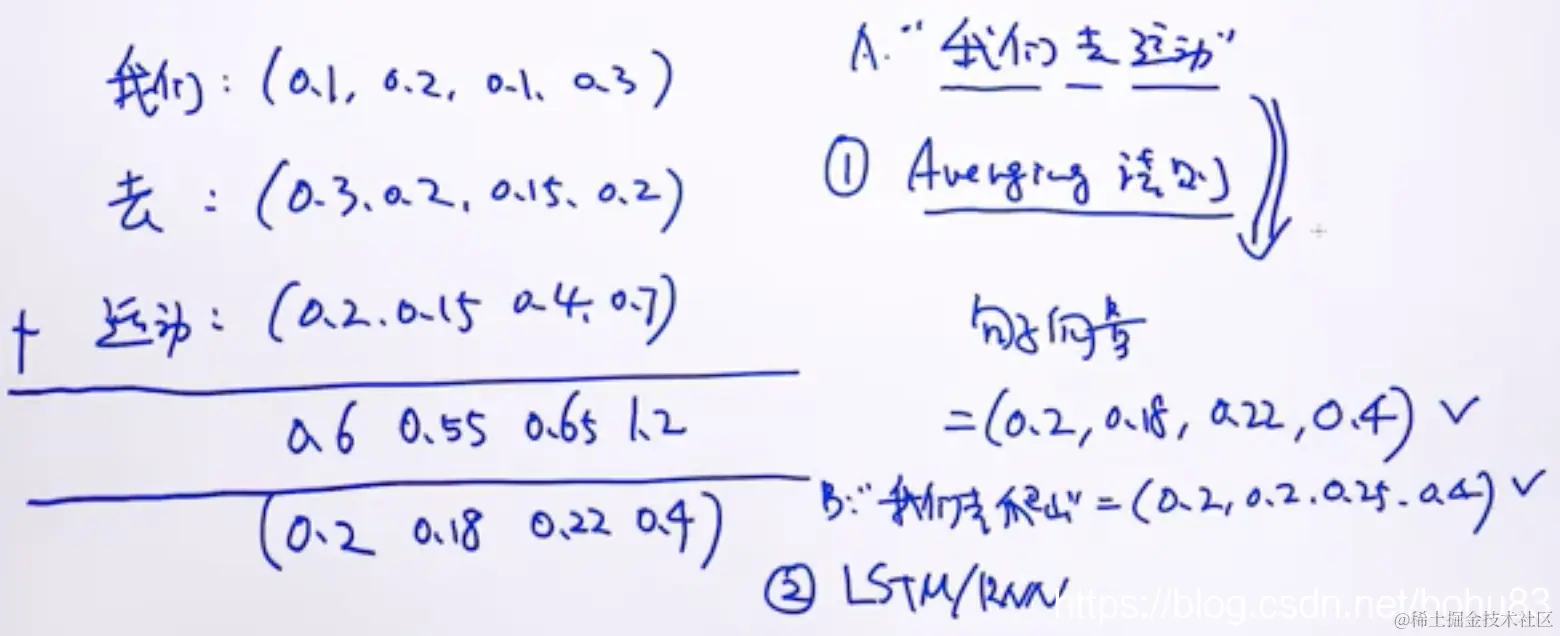 我们：(0.1, 0.2, 0.1、0.3)
去：(0.3、0.2, 0.15、0.2)
+ 运动：(0.2、0.15 0.4、0.7)
0.6 0.55 0.65 1.2
(0.2 0.18 0.22 0.4)
A. "我们去运动"
① Averging 法则
句子向量
=(0.2, 0.18, 0.22, 0.4) ✓
B: "我们去爬山" = (0.2, 0.2、0.25、0.4) ✓
② LSTM/RNN
https://blog.csdn.net/bohu83
@稀土掘金技术社区